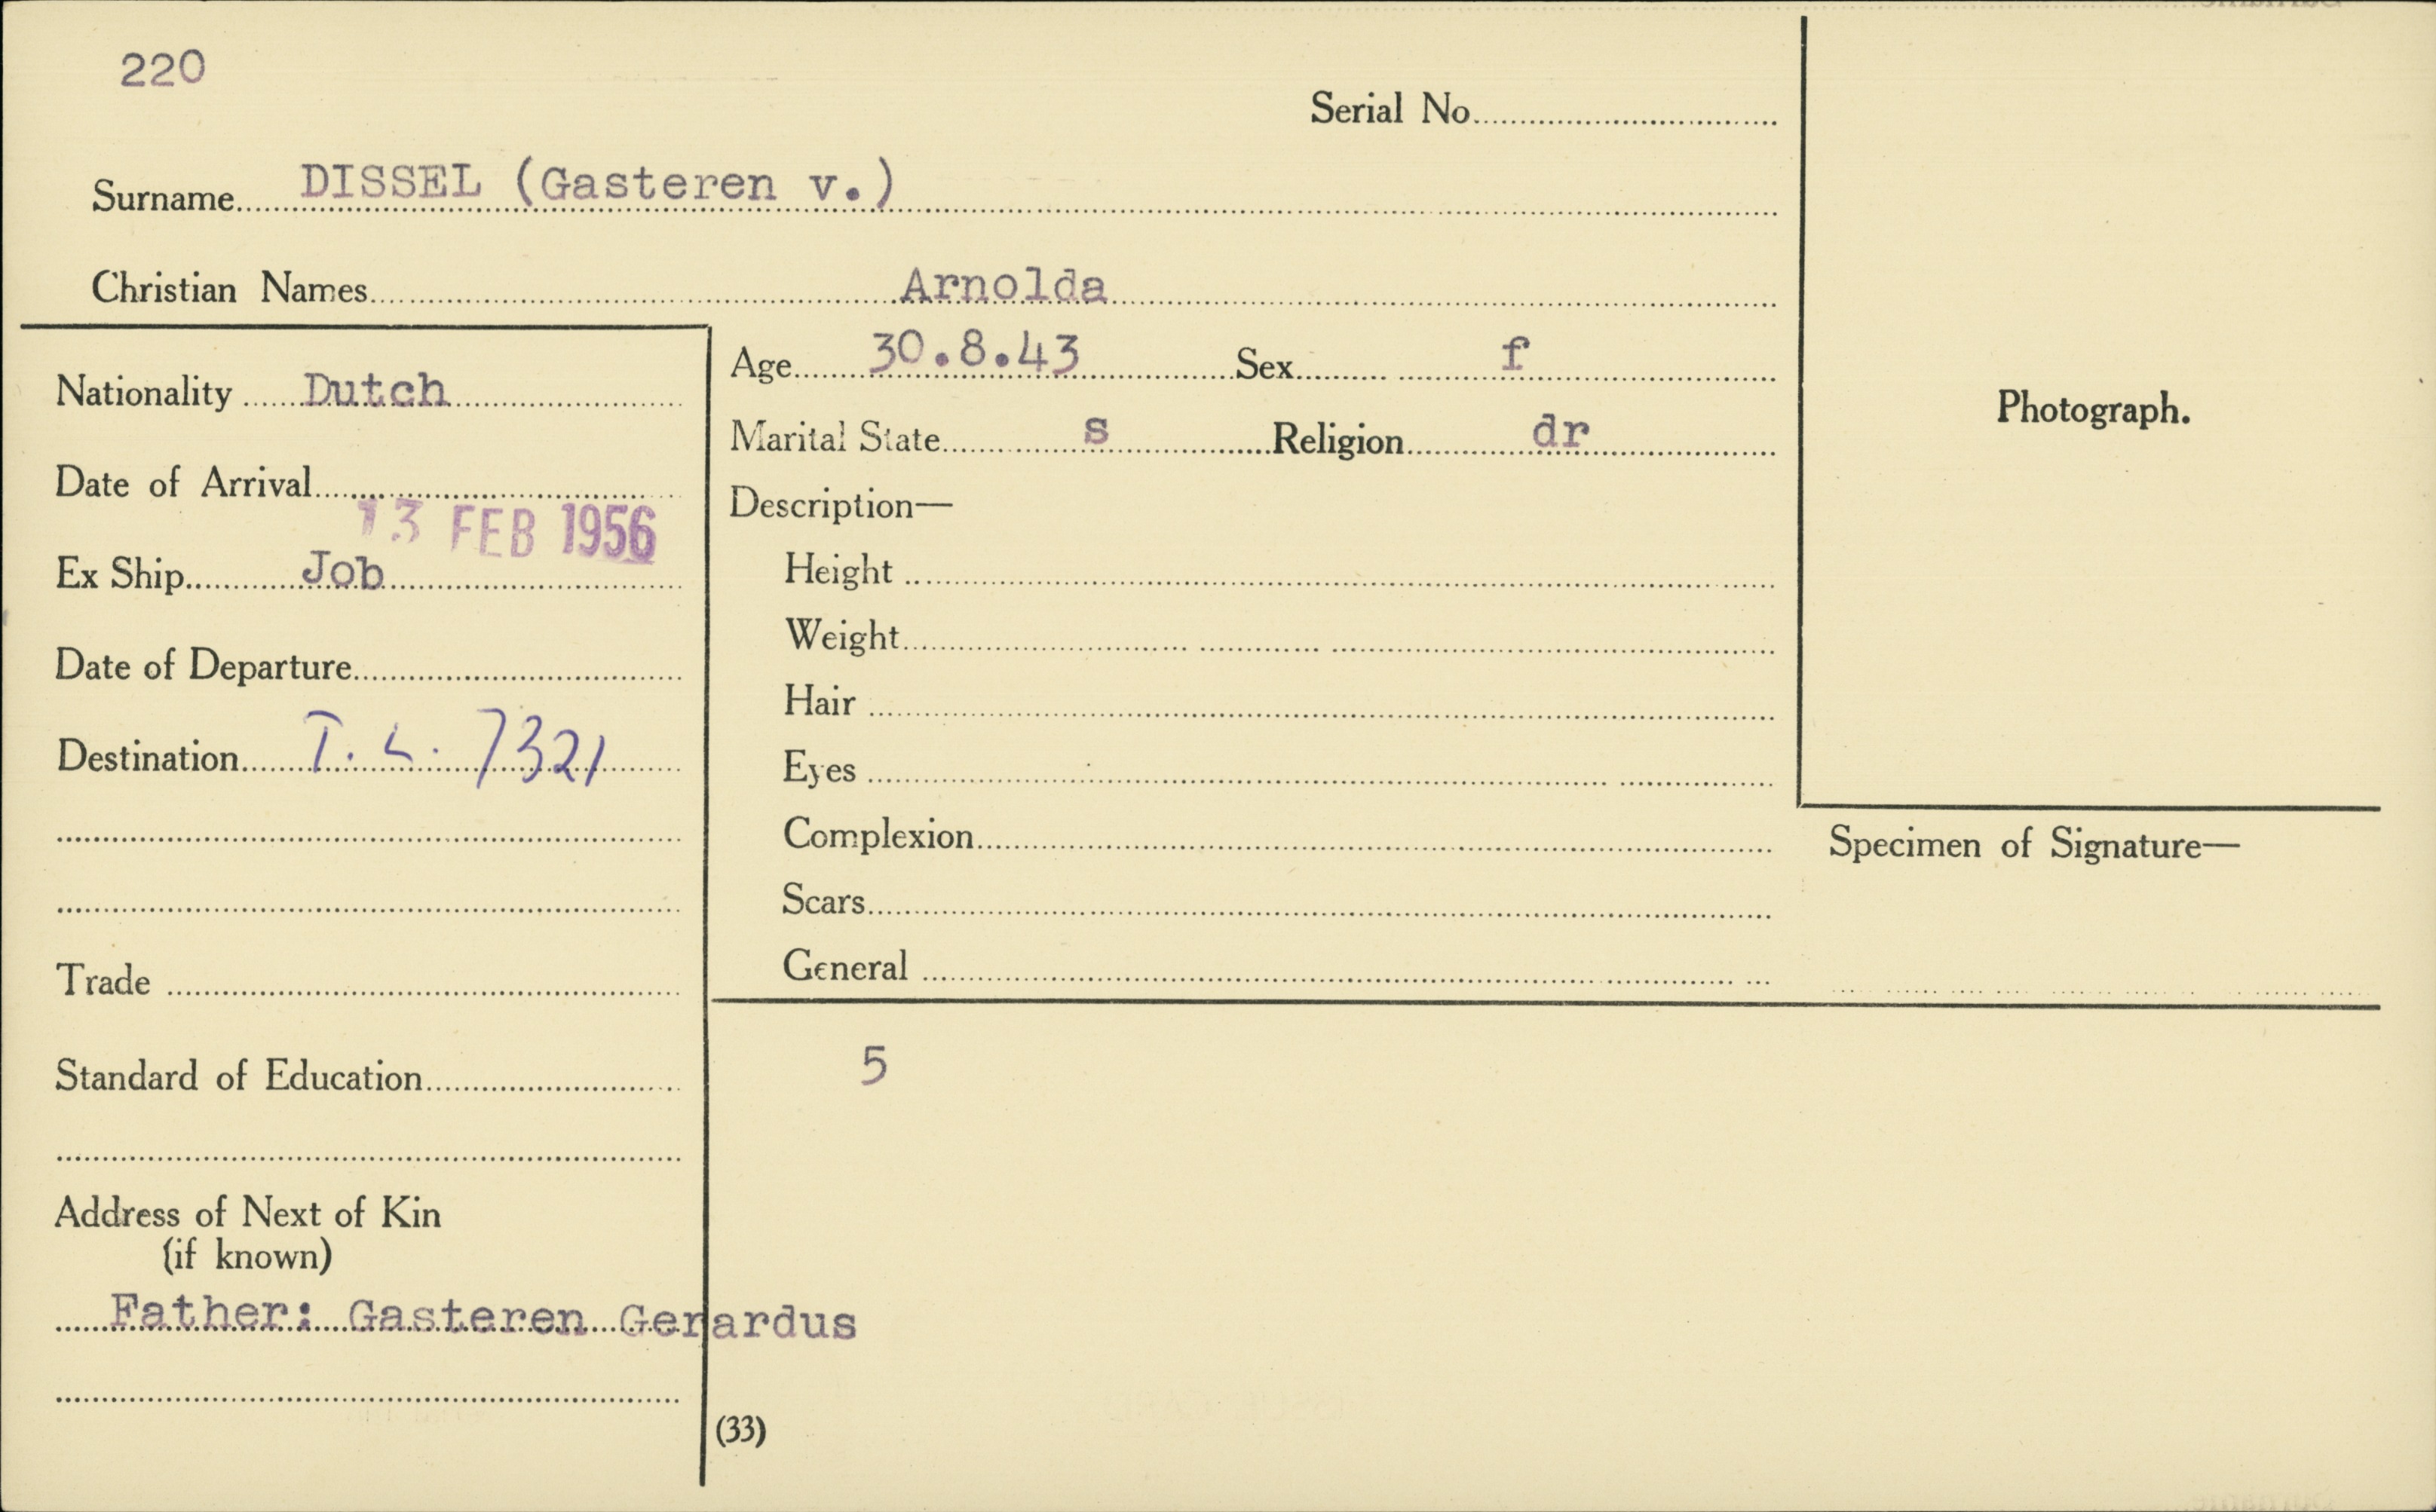 220
Serial No.
Surname DISSEL (Gasteren v.)
Christian Names Arnolda
Nationality Dutch
Date of Arrival
13 FEB 1956
Ex Ship Job
Date of Departure
Destination T. L. 7321
Trade
Standard of Education
Address of Next of Kin
(if known)
Father: Gasteren Gerardus
Age 30.8.43 Sex f
Marital State s Religion dr
Description—
Height
Weight
Hair
Eyes
Complexion
Scars
General
5
(33)
Photograph.
Specimen of Signature—